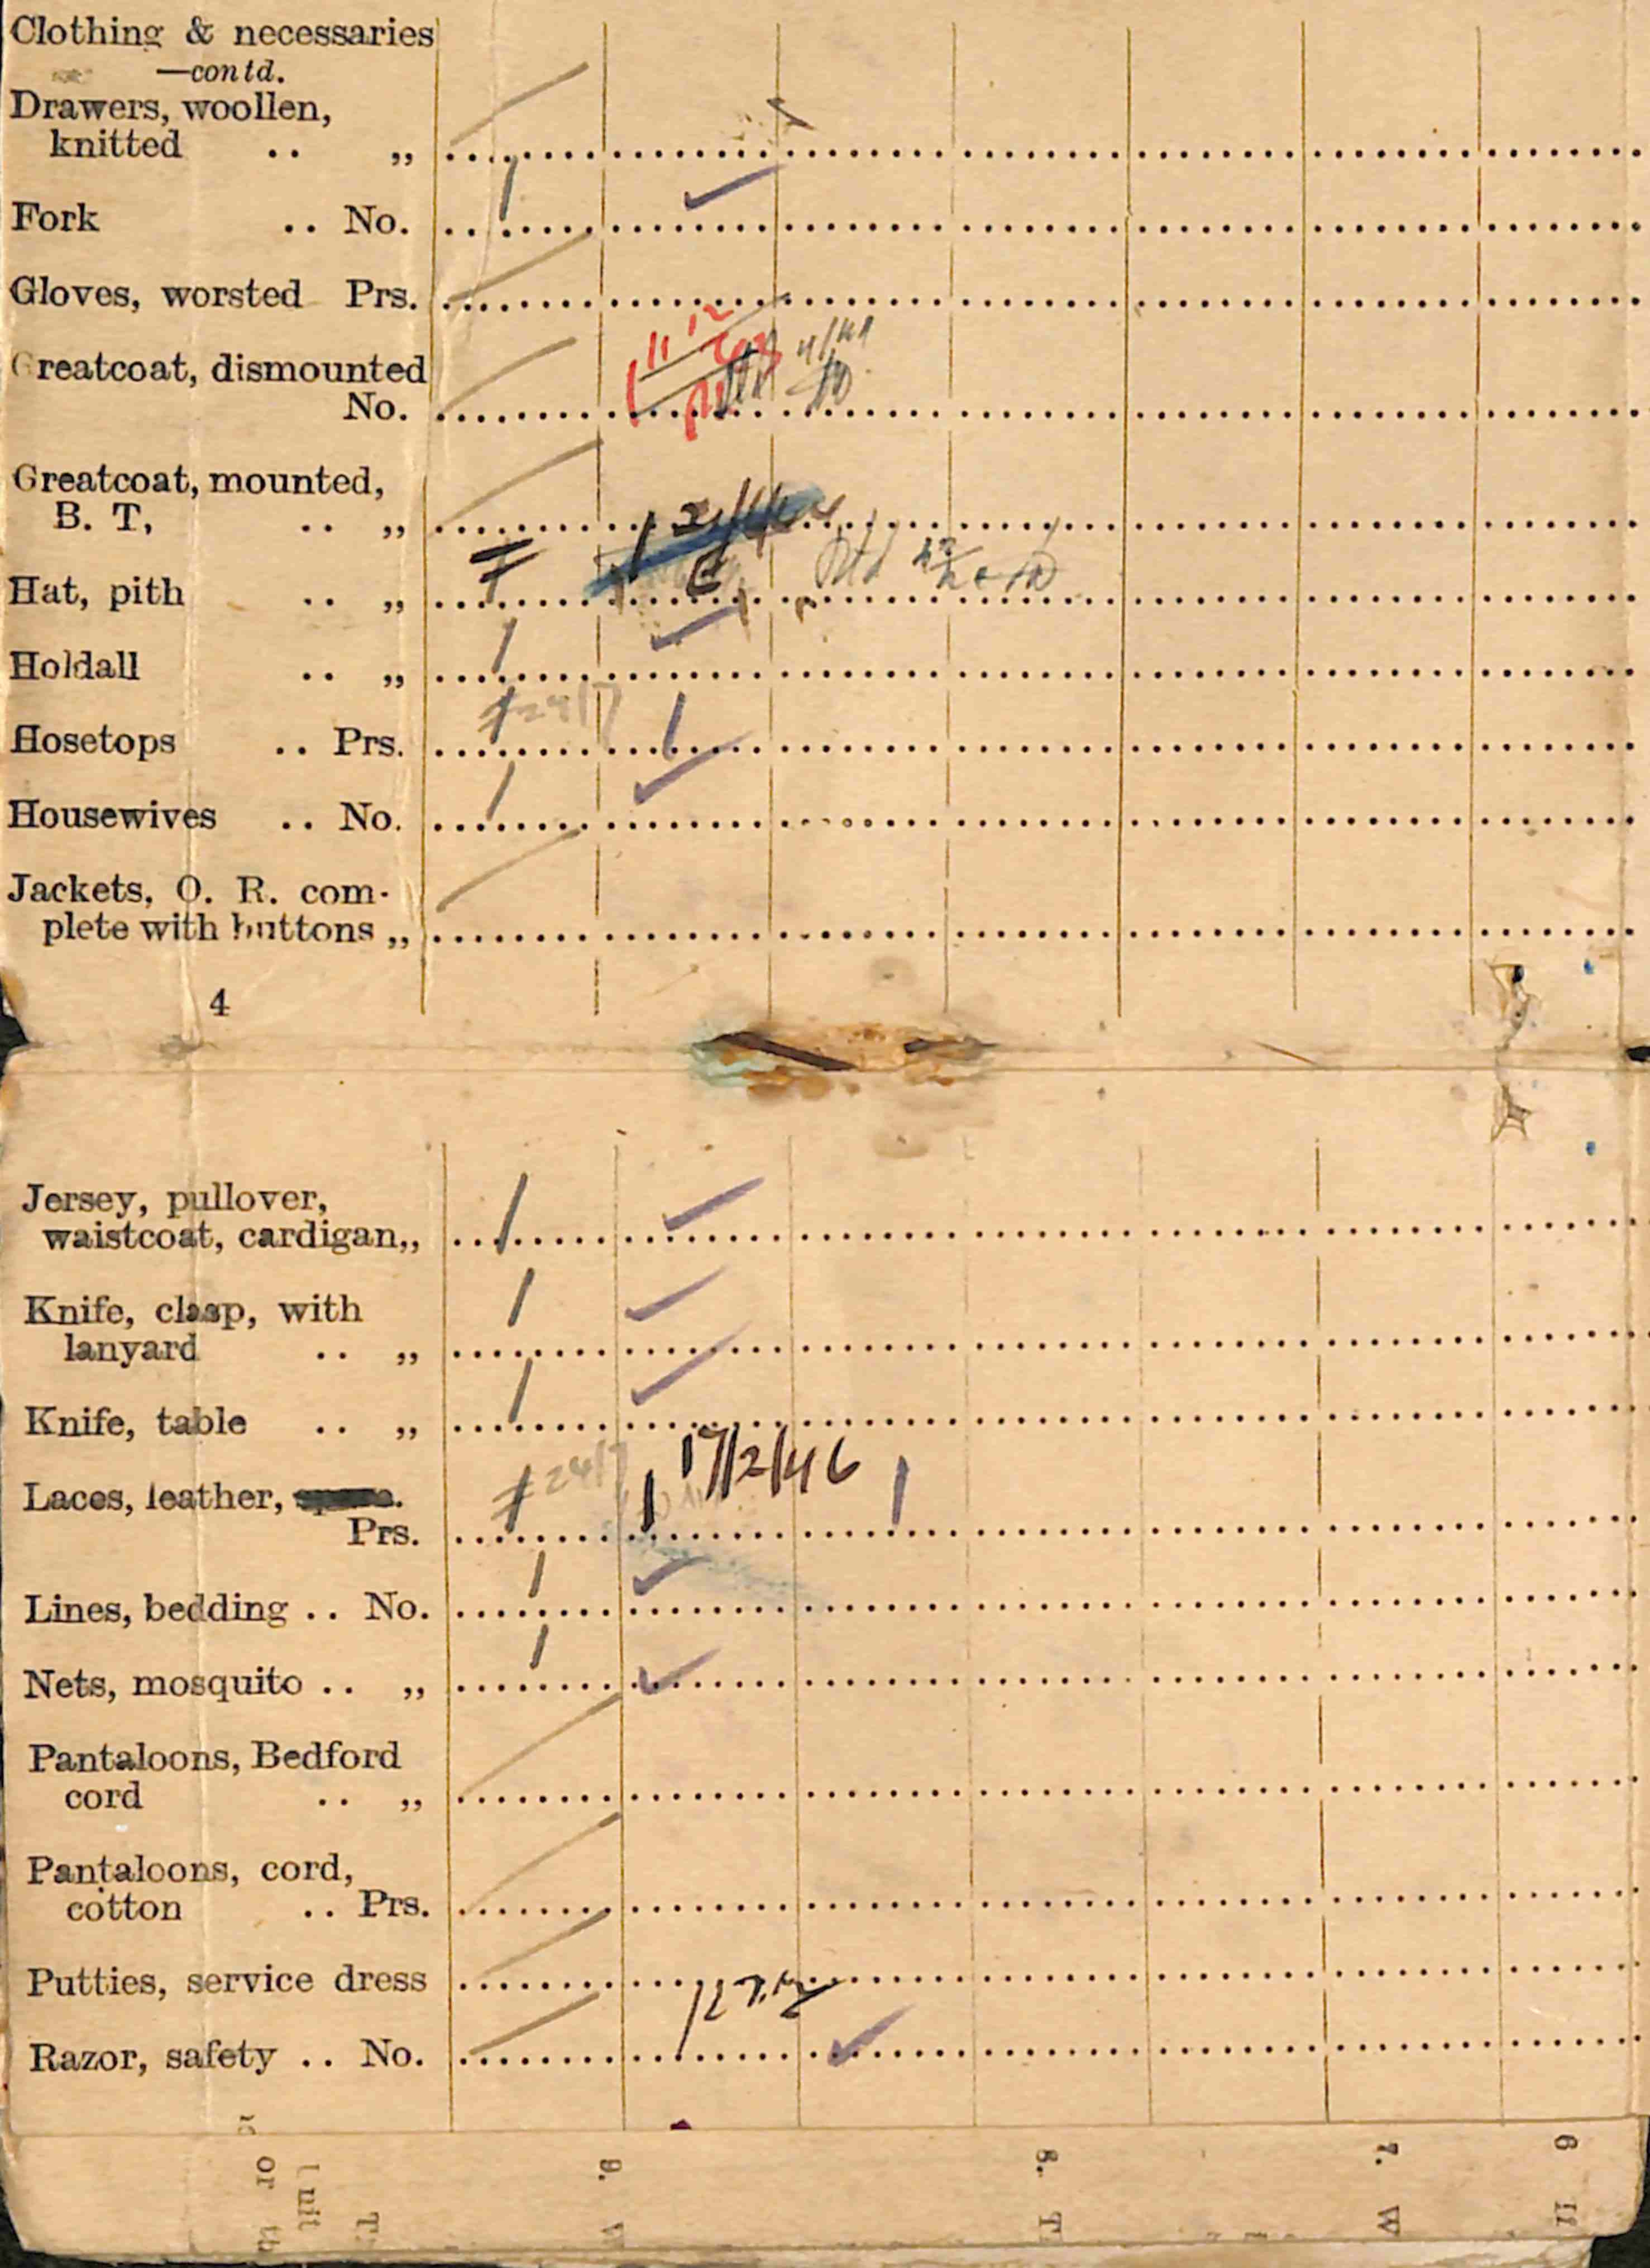 Clothing & necessaries
—contd.
Drawers, woollen,
knitted .. „
Fork .. No. 1 ✓
Gloves, worsted Prs.
Greatcoat, dismounted
No.
Greatcoat, mounted,
B. T, .. „
Hat, pith .. „ 1 1
Holdall .. „ 1 ✓
Hosetops .. Prs. 1 24/7 1
Housewives .. No. 1 ✓
Jackets, O. R. com-
plete with buttons „
4
Jersey, pullover,
waistcoat, cardigan,„ 1 ✓
Knife, clasp, with
lanyard .. „ 1 ✓
Knife, table .. „ 1 ✓
17/2/46
Laces, leather, 1 24/7 1 1
Prs.
Lines, bedding .. No. 1 ✓
Nets, mosquito .. „ 1 ✓
Pantaloons, Bedford
cord .. „
Pantaloons, cord,
cotton .. Prs.
Putties, service dress
Razor, safety .. No. ✓
or
T.
9.
8. T
7. W
6